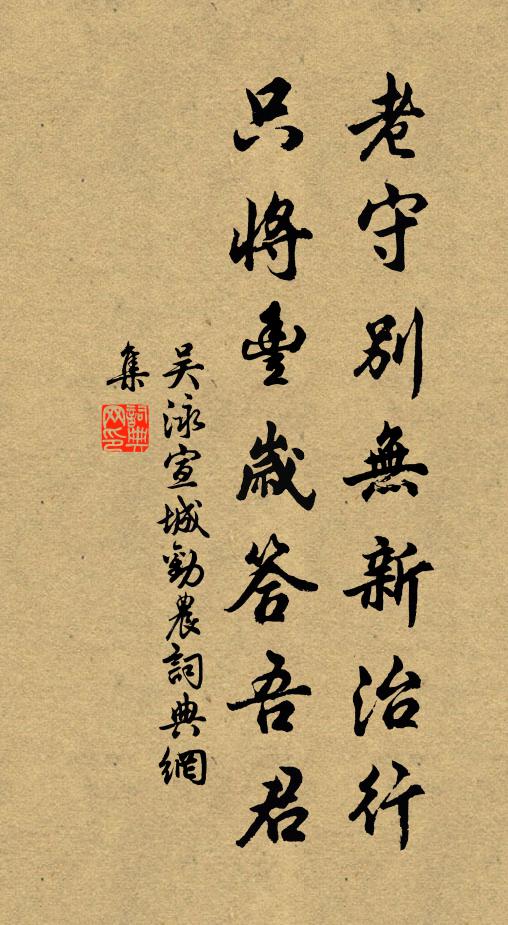 老守別無新治行
只將豐歲答吾君
吳泳宣城勸農詞典網
集
詞典
网印